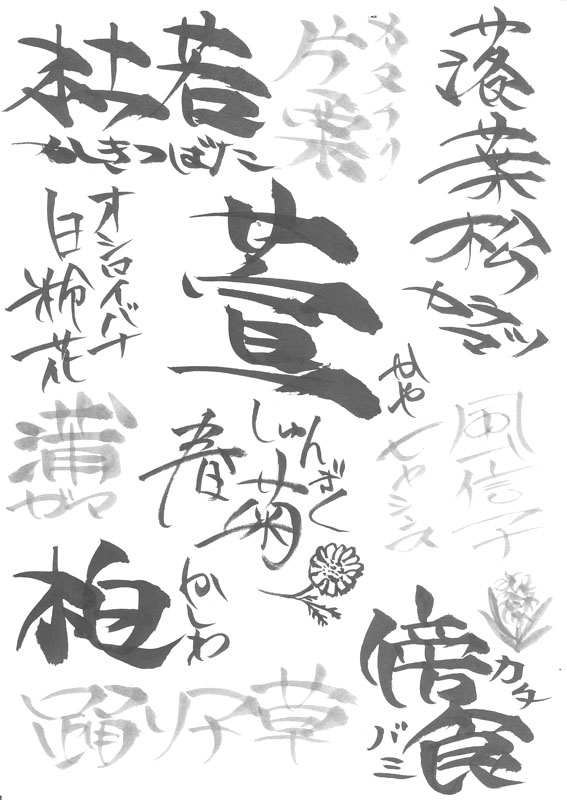 杜若
かきつばた
片栗
カタクリ
落葉松
カラマツ
オシロイバナ
白粉花
萱
かや
蒲
ガマ
春菊
しゅんぎく
風信子
ヒヤシンス
柏
かしわ
傍食
カタバミ
踊り子草